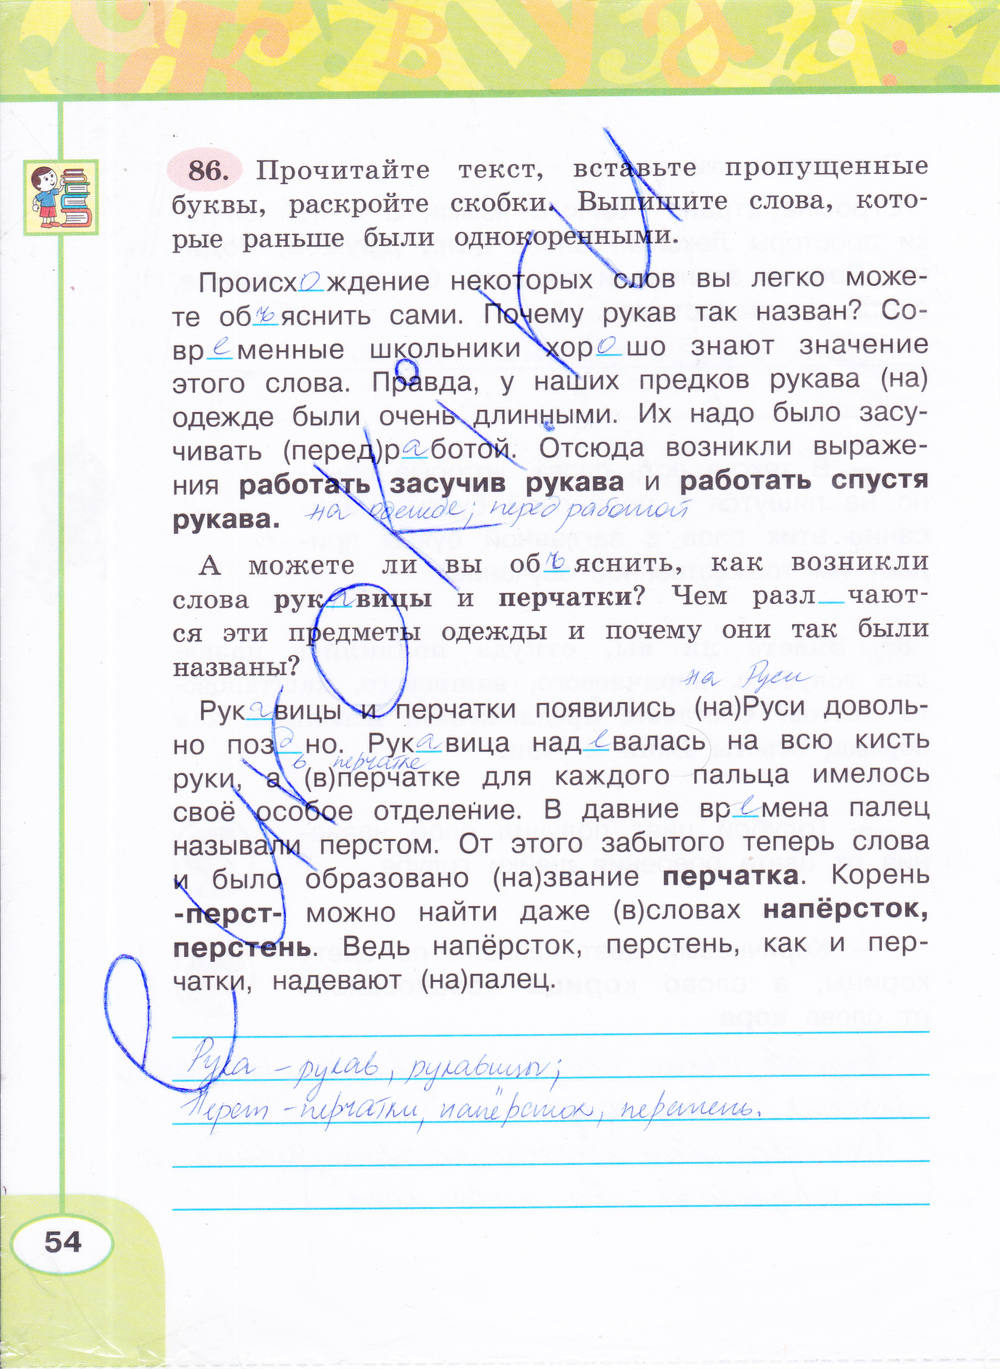 86. Прочитайте текст, вставьте пропущенные
буквы, раскройте скобки. Выпишите слова, кото-
рые раньше были однокоренными.
Происхождение некоторых слов вы легко може-
те объяснить сами. Почему рукав так назван? Со-
временные школьники хорошо знают значение
этого слова. Правда, у наших предков рукава (на)
одежде были очень длинными. Их надо было засу-
чивать (перед)работой. Отсюда возникли выраже-
ния работать засучив рукава и работать спустя
рукава. на одежде; перед работой
А можете ли вы объяснить, как возникли
слова рукавицы и перчатки? Чем разл_чают-
ся эти предметы одежды и почему они так были
названы?
на Руси
Рукавицы и перчатки появились (на)Руси доволь-
но поздно. Рукавица надевалась на всю кисть
в перчатке
руки, а (в)перчатке для каждого пальца имелось
своё особое отделение. В давние времена палец
называли перстом. От этого забытого теперь слова
и было образовано (на)звание перчатка. Корень
-перст- можно найти даже (в)словах напёрсток,
перстень. Ведь напёрсток, перстень, как и пер-
чатки, надевают (на)палец.
Рука - рукав, рукавицы;
Перст - перчатки, напёрсток, перстень.
54